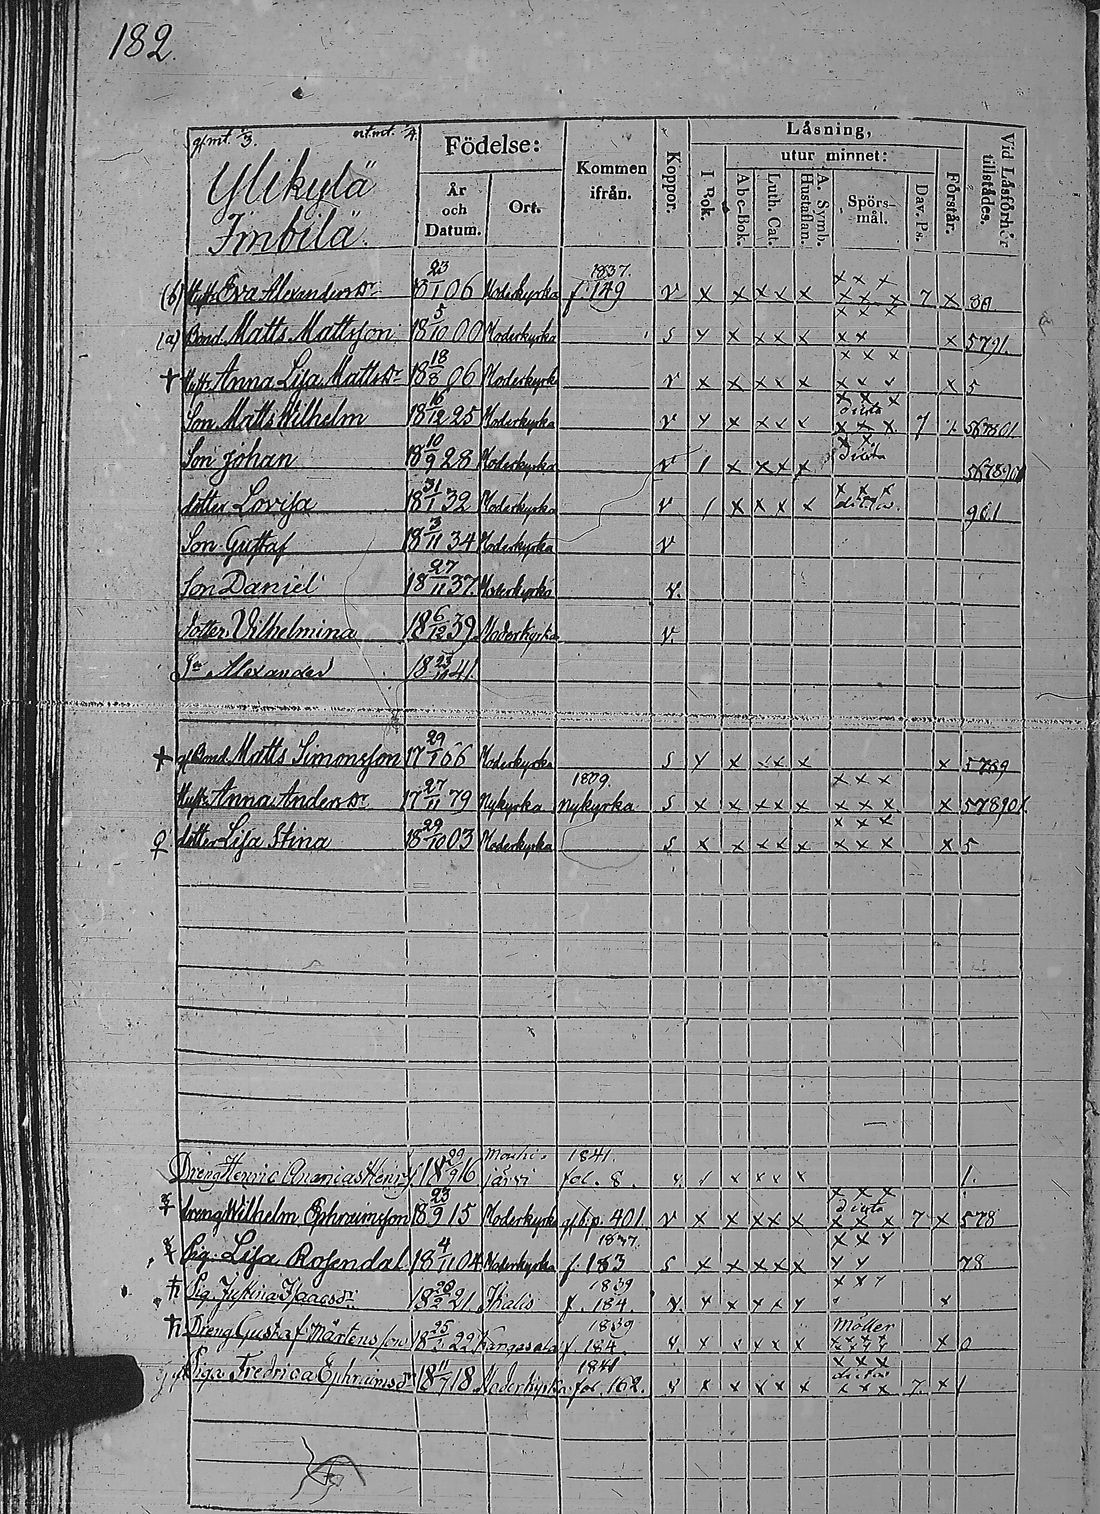 182.
gf mt. 1/3.
Ylikylä
Imbilä
Födelse:
År och Datum.
Ort.
Kommen ifrån.
Koppor.
Låsning,
utur minnet:
I Bok.
Abc-Bok.
Luth. Cat.
A. Symb. Hustaflan.
Spörs-mål.
Dav. Ps.
Förstår.
Vid Låsförhör tillstådes.
(b) Hustr. Eva Alexandersdr 18 23/1 06 Moderkyrka 1837. f. 149 v x x x x x x x x 7 x
(a) Bond Matts Mattsson 18 5/10 00 Moderkyrka s x x x x x x x x 5791.
† Hustr. Anna Lisa Mattsdr 18 18/3 06 Moderkyrk v x x x x x x x x x 5
Son Matts Wilhelm 18 16/12 25 Moderkyrka v x x x x x dicta x x x 7
Son Johan 18 10/9 28 Moderkyrka v x x x x dicta
dotter Lovisa 18 31/1 32 Moderkyrka v x x x x 901
Son Gustaf 18 3/11 34 Moderkyrka v
Son Daniel 18 27/11 37. Moderkyrka v.
Dotter Vilhelmina 18 6/12 39 Moderkyrka v
Sn Alexander 18 41.
† gl Bond Matts Simonsson 17 29/1 66 Moderkyrka s x x x x x x 5789
Hustr Anna Andersdr 17 27/11 79 Nykyrka 1809. Nykyrka s x x x x x x x x x
dotter Lisa Stina 18 29/10 03 Moderkyrka s x x x x x x x x x 5
Dreng Henric Ananias Henr 18 29/9 16 järvi 1841. fol. 8. x x x x 1.
dreng Wilhelm Ephraimsson 18 23/9 15 Moderkyrka gl b. p. 401. v x x x x x dicta x x x 7 x 578
Pig. Lisa Rosendal 18 4/11 04 Moderkyrka 1837. f. 183 s x x x x x 78
Pig. Justina Isaacsdr 18 21 Ikalis 1839 f. 184. v x x x x x
Dreng Gustaf Mårtensson 18 25/1 22 Kangasala 1839 f. 184. x x x x x x 0
Piga Fredrica Ephraimsdr 18 11/7 18 Moderkyrka 1841 fol. 162. v x x x x x x x x 7 x 1